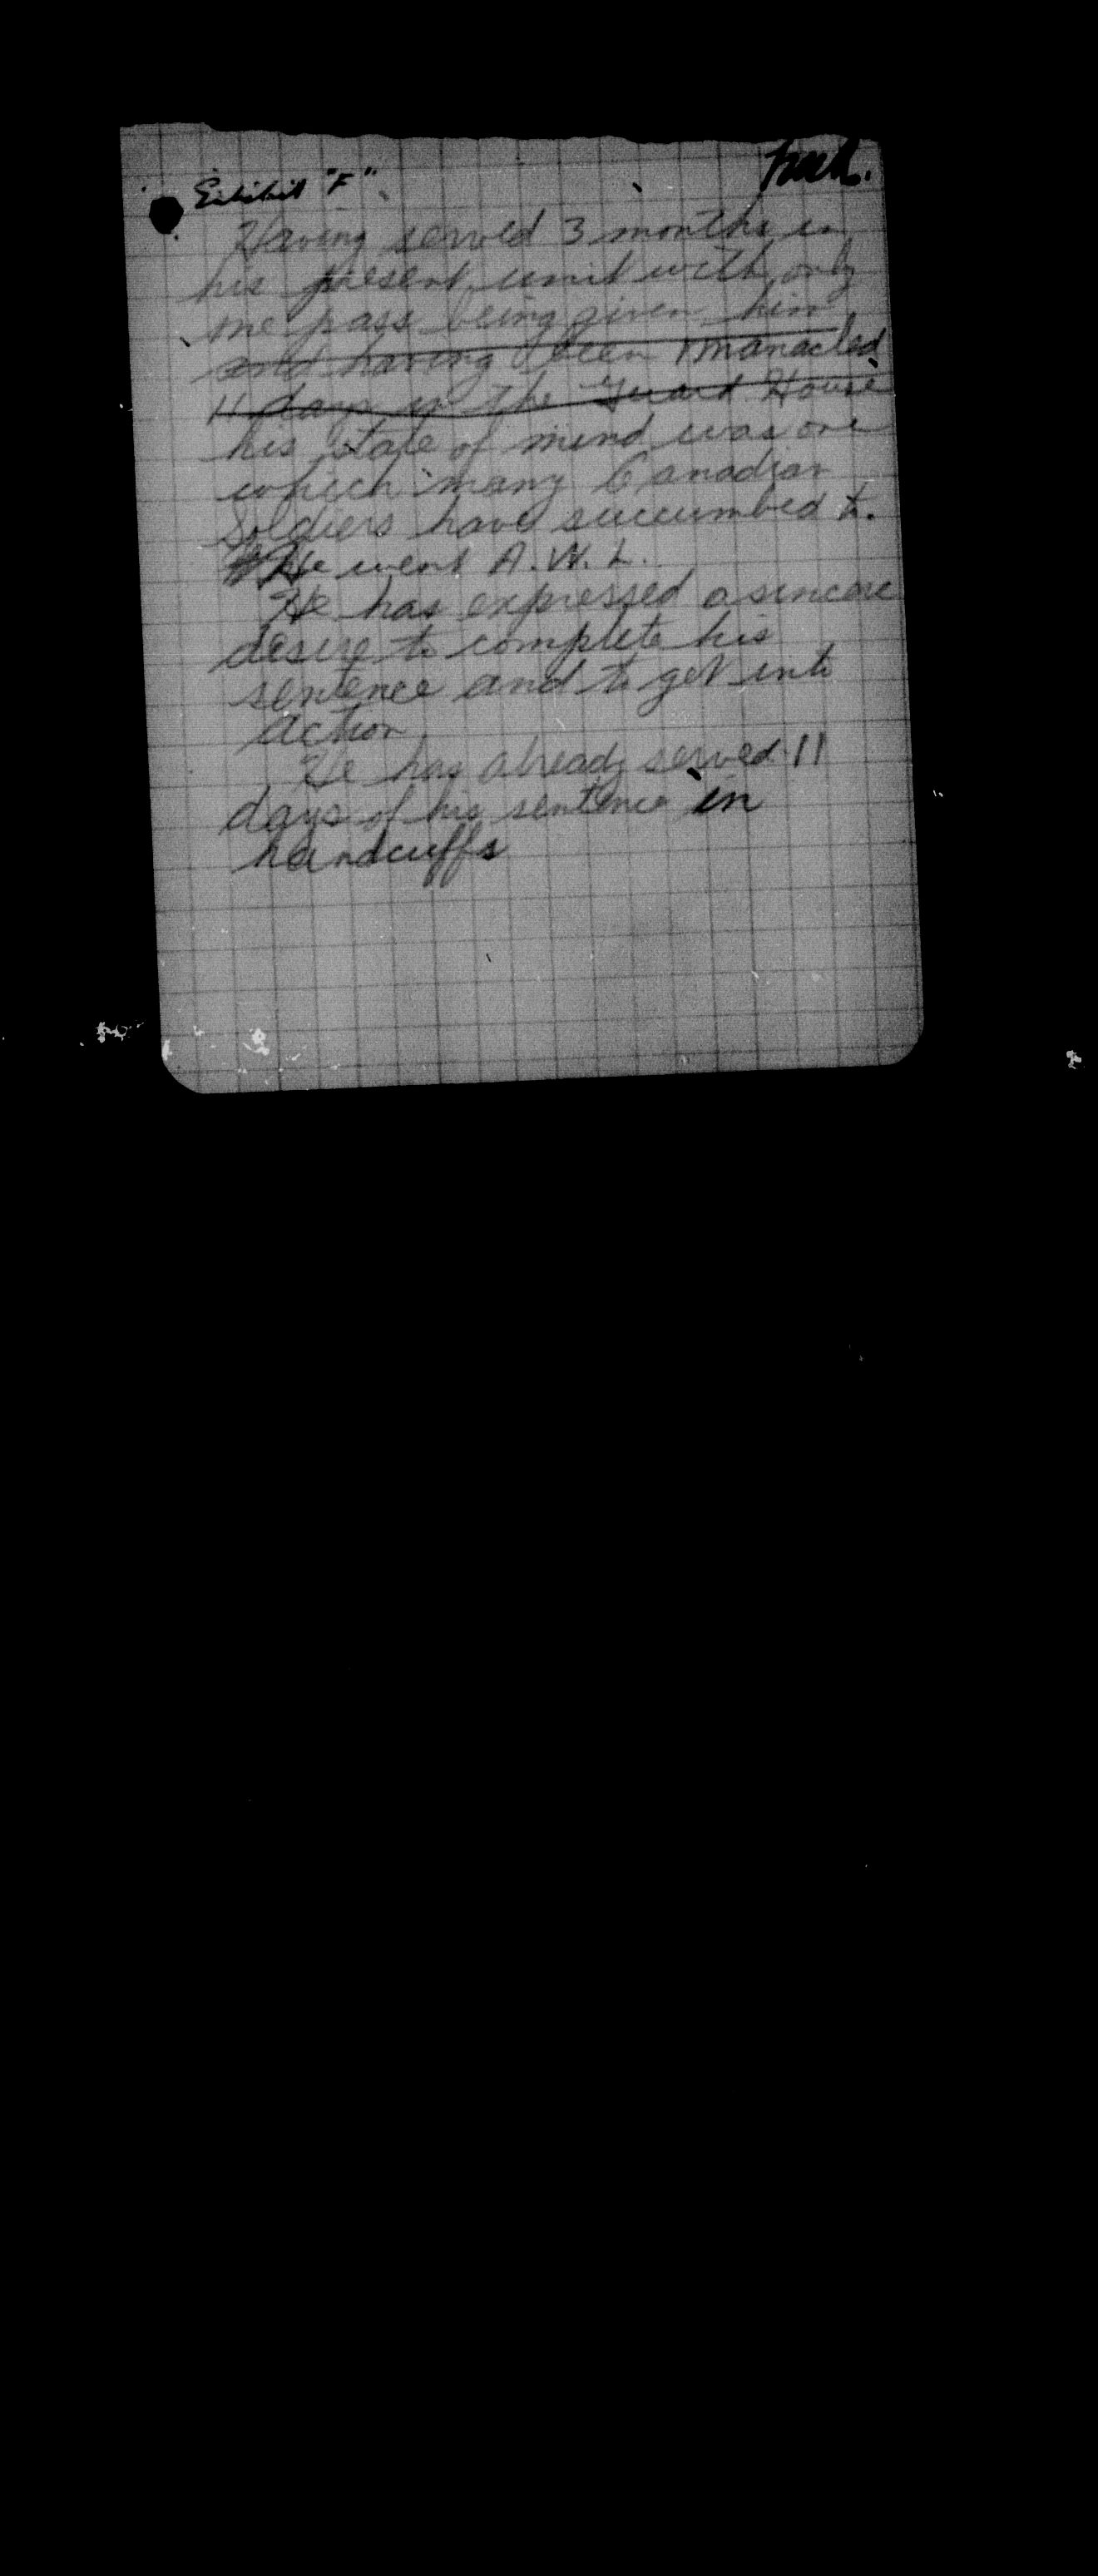 Exhibit "F"
Having served 3 months in
his present unit with only
one pass being given him
and having been manacled
11 days in the Guard House
his state of mind was one
which many Canadian
Soldiers have succumbed to.
He went A.W.L.
He has expressed a sincere
desire to complete his
sentence and to get into
action
He has already served 11
days of his sentence in
handcuffs